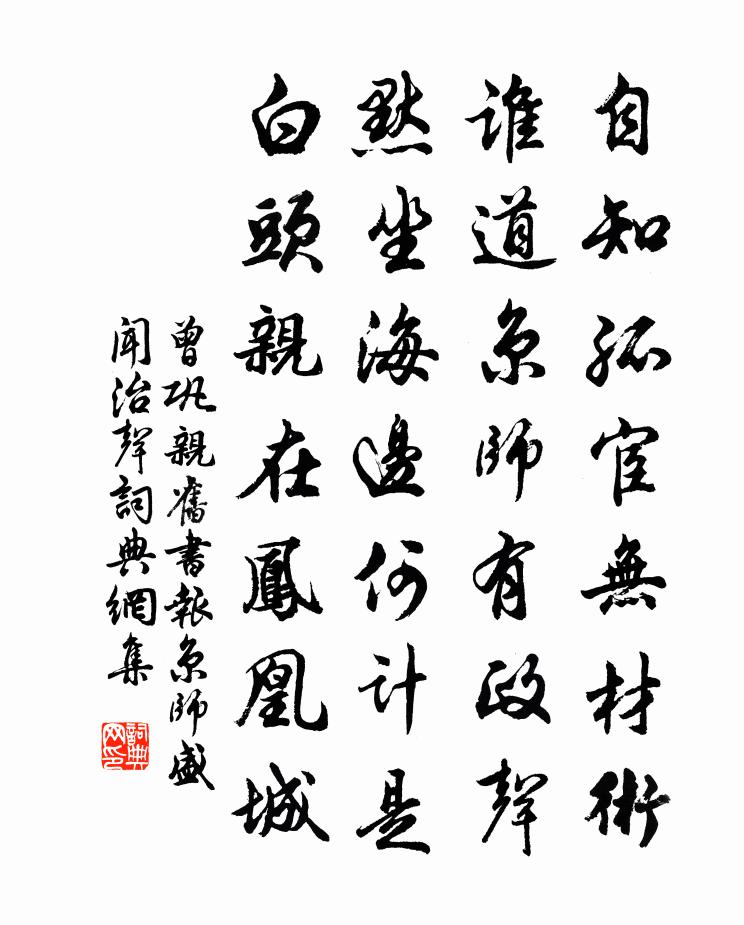 自知孤宦無材術
誰道京師有政聲
默坐海邊何計是
白頭親在鳳凰城
曾巩親舊書報京師盛
聞治聲詞典網集
詞典
网印